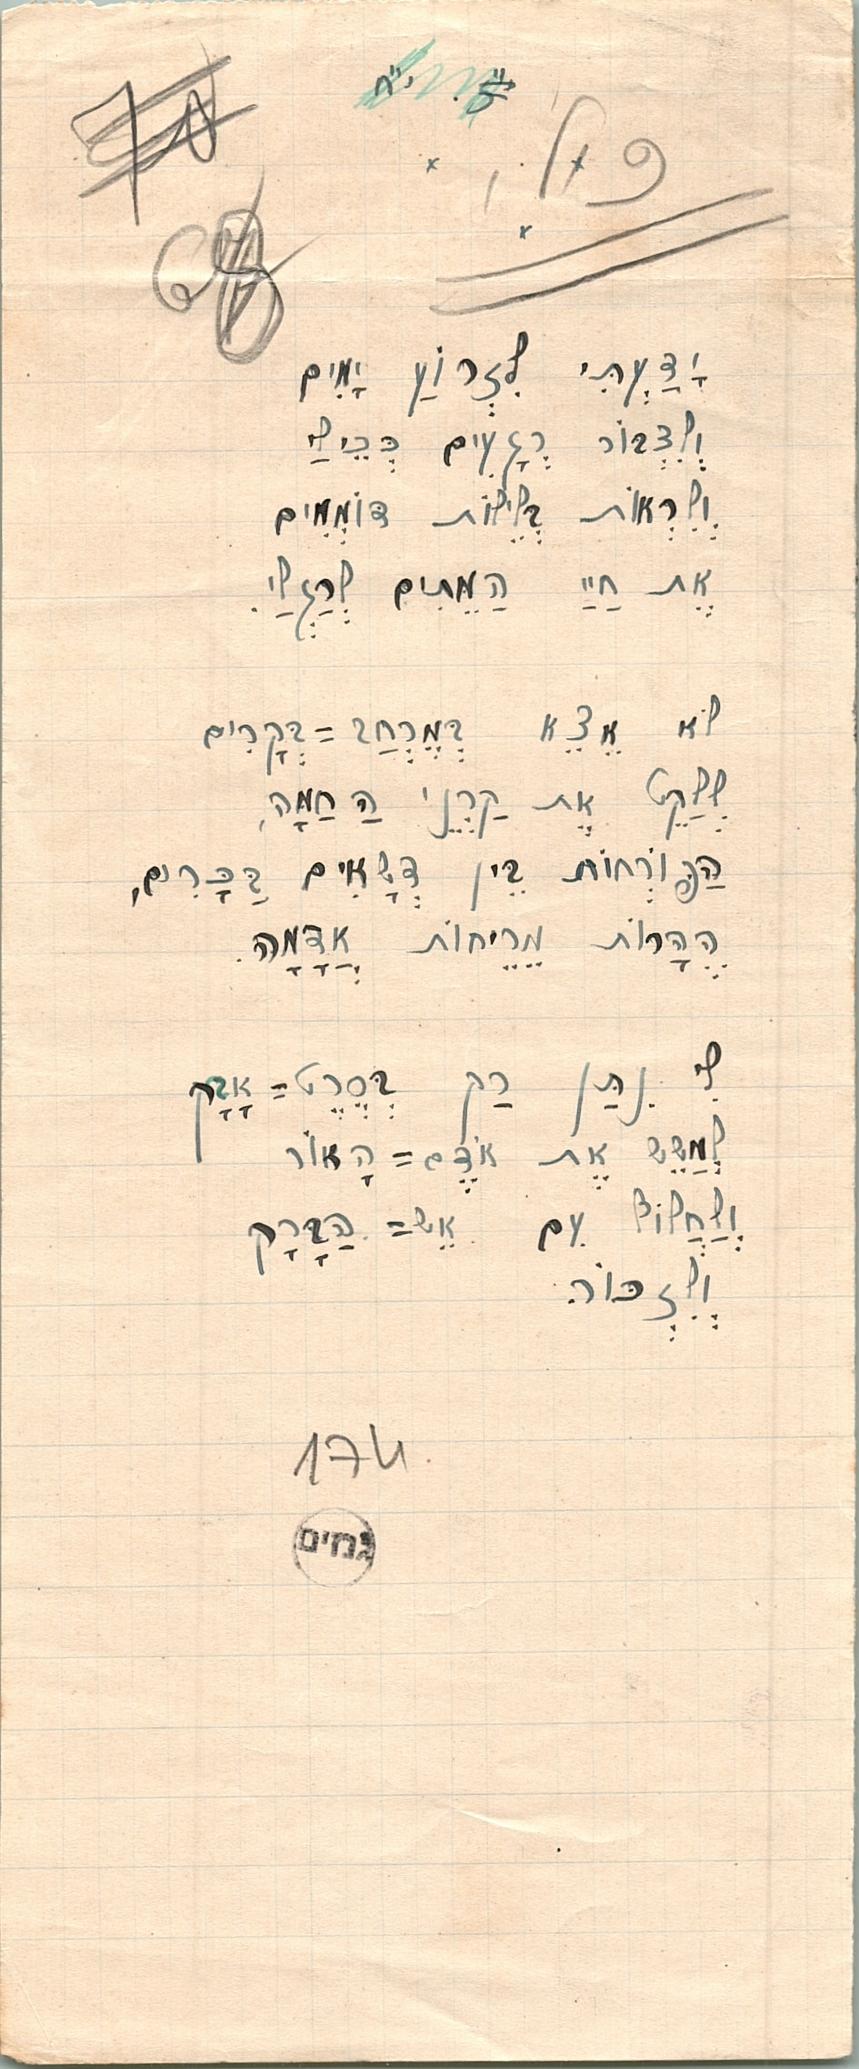 יָדַעְתִּי לִזְרוֹעַ יָמִים
וְלִצְבּוֹר רְגָעִים כְּכֵילַי
וְלִרְאוֹת בְּלֵילוֹת דּוֹמְמִים
אֶת חַיַּי הַמֵּתִים לְרַגְלַי.
לֹא אֵצֵא בְּמֶרְחַב=בְּקָרִים
לְלַקֵּט אֶת קַרְנֵי הַחַמָּה,
הַפּוֹרְחוֹת בֵּין דְּשָׁאִים בַּכָּרִים,
הֶהָרוֹת מֵרֵיחוֹת אֲדָמָה.
לִי נִתַּן רַק בְּסֶרֶט=אָבָק
לְמַשֵּׁשׁ אֶת אֹדֶם=הָאוֹר
וְלַחֲלוֹף עִם אֵשׁ=הַבָּרָק
וְלִזְכּוֹר.
174.
גנזים